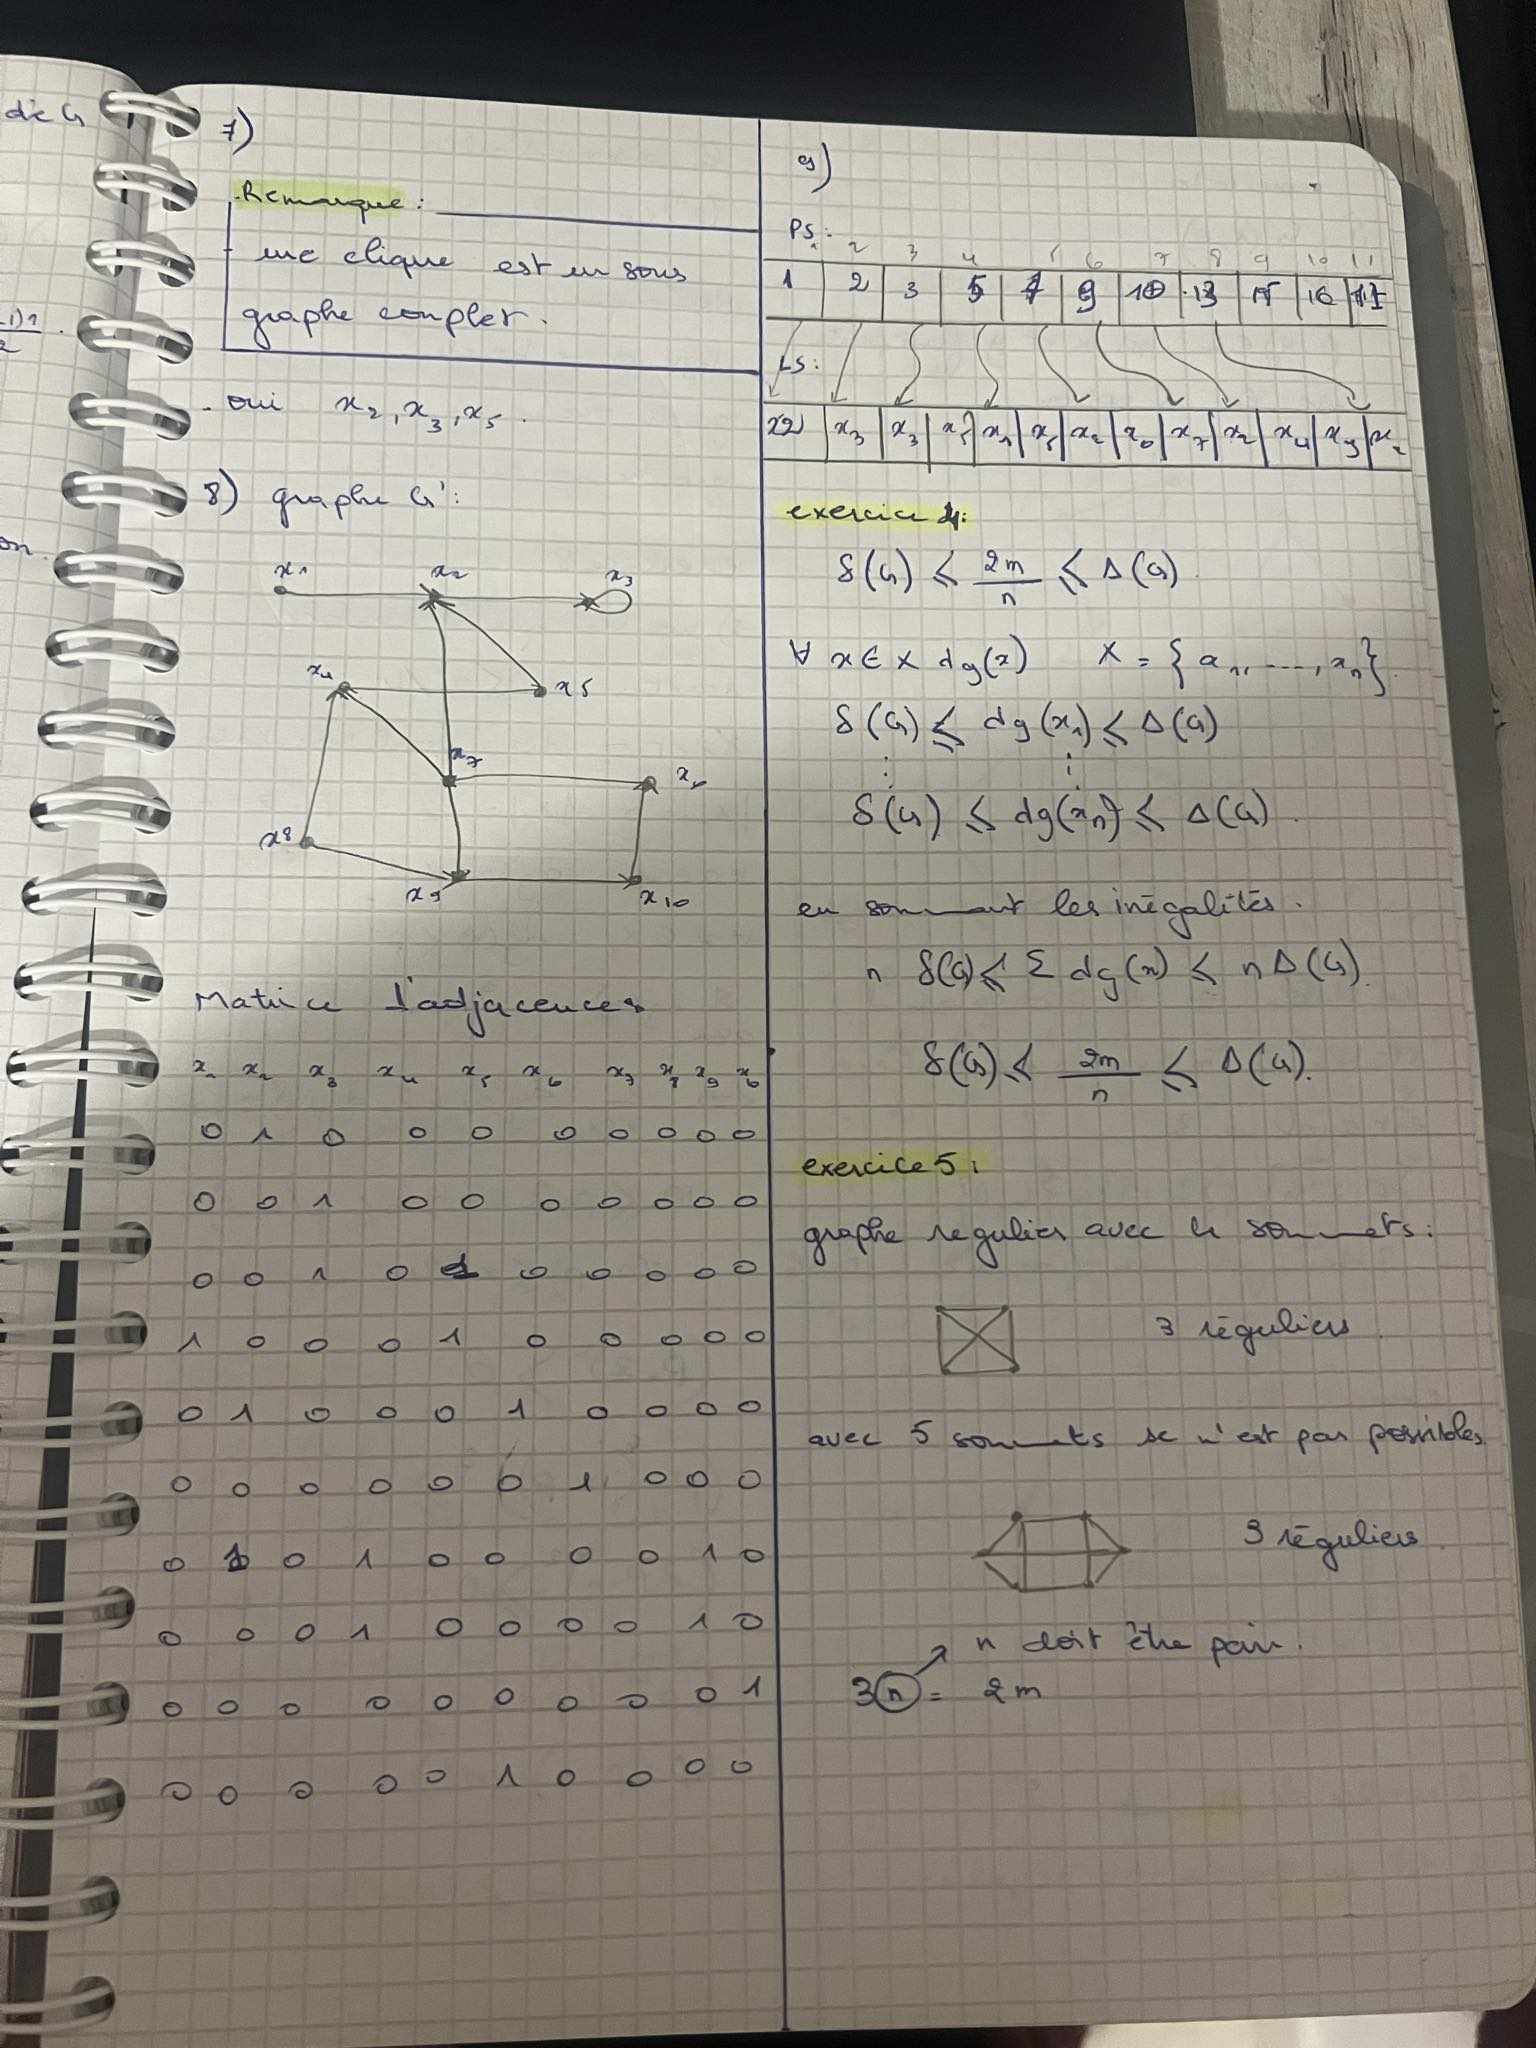 die G
7)
Remarque :
- une clique est un sous
graphe complet.
- oui x2, x3, x5.
8) graphe G' :
x1 x2 x3
x4 x5
x7 x6
x8
x9 x10
Matrice d'adjacences
x1 x2 x3 x4 x5 x6 x7 x8 x9 x10
0 1 0 0 0 0 0 0 0 0
0 0 1 0 0 0 0 0 0 0
0 0 1 0 1 0 0 0 0 0
1 0 0 0 1 0 0 0 0 0
0 1 0 0 0 1 0 0 0 0
0 0 0 0 0 0 1 0 0 0
0 1 0 1 0 0 0 0 1 0
0 0 0 1 0 0 0 0 1 0
0 0 0 0 0 0 0 0 0 1
0 0 0 0 0 1 0 0 0 0
9)
PS :
1 2 3 4 5 6 7 8 9 10 11
1 2 3 5 7 9 10 13 15 16 17
LS :
x2 x3 x3 x5 x1 x5 x2 x6 x7 x2 x4 x9 x
exercice 4 :
δ(G) ⩽ 2m/n ⩽ Δ(G)
∀ x ∈ X dg(x) X = { x1, ..., xn }
δ(G) ⩽ dg(x1) ⩽ Δ(G)
⋮ ⋮
δ(G) ⩽ dg(xn) ⩽ Δ(G).
en sommant les inégalités.
n δ(G) ⩽ Σ dg(x) ⩽ n Δ(G).
δ(G) ⩽ 2m/n ⩽ Δ(G).
exercice 5 :
graphe regulier avec 4 sommets :
3 réguliers
avec 5 sommets se n'est pas possibles
3 réguliers
n doit être pair.
3n = 2m